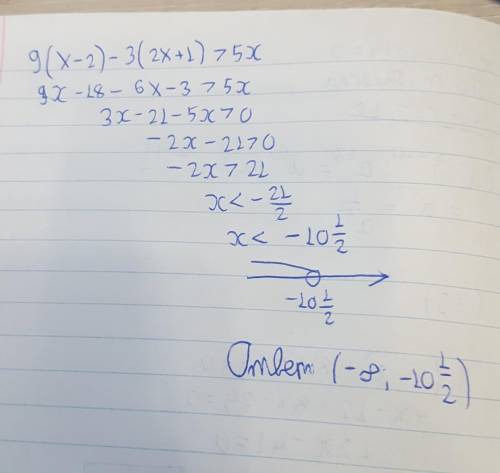 9(x-2)-3(2x+1)>5x
9x-18-6x-3>5x
3x-21-5x>0
-2x-21>0
-2x>21
x<-21/2
x< -10 1/2
-10 1/2
Ответ (-∞; -10 1/2)